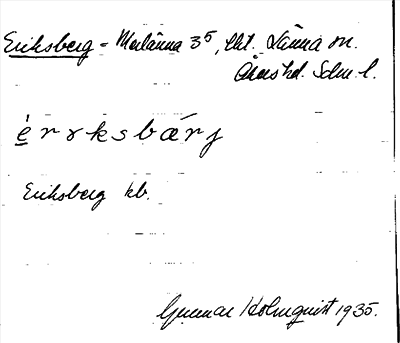 Eriksberg - Merlänna 3⁵, lht. Länna sn.
Åkers hd. Sdm l.
èrɤksbærj
Eriksberg kb.
Gunnar Holmquist 1935.